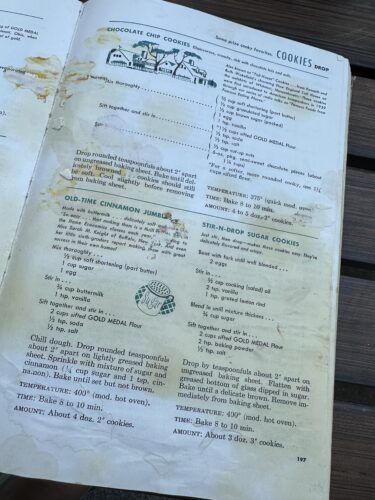 of GOLD MEDAL
of gold.
Some prize cooky favorites. COOKIES DROP
CHOCOLATE CHIP COOKIES Glamorous, crunchy, rich with chocolate bits and nuts.
Mix thoroughly
Sift together and stir in
Stir in
2/3 cup soft shortening (part butter)
1/2 cup granulated sugar
1/2 cup brown sugar (packed)
1 egg
1 tsp. vanilla
1 1/2 cups sifted GOLD MEDAL Flour
1/2 tsp. soda
1/2 tsp. salt
1/2 cup cut-up nuts
6-oz. pkg. semi-sweet chocolate pieces (about 1 1/4 cups)
*For a softer, more rounded cooky, use 1 3/4
cups sifted flour.
Drop rounded teaspoonfuls about 2" apart
on ungreased baking sheet. Bake until
lightly browned . . . cookies should still
be soft. Cool slightly before removing
from baking sheet.
TEMPERATURE: 375° (quick mod. oven).
TIME: Bake 8 to 10 min.
AMOUNT: 4 to 5 doz. 2" cookies.
OLD-TIME CINNAMON JUMBLES
Made with buttermilk
Mix thoroughly . . .
1/2 cup soft shortening (part butter)
1 cup sugar
1 egg
Stir in . . .
3/4 cup buttermilk
1 tsp. vanilla
Sift together and stir in . . .
2 cups sifted GOLD MEDAL Flour
1/2 tsp. soda
1/2 tsp. salt
Chill dough. Drop rounded teaspoonfuls
about 2" apart on lightly greased baking
sheet. Sprinkle with mixture of sugar and
cinnamon (1/4 cup sugar and 1 tsp. cin-
namon). Bake until set but not brown.
TEMPERATURE: 400° (mod. hot oven).
TIME: Bake 8 to 10 min.
AMOUNT: About 4 doz. 2" cookies.
STIR-N-DROP SUGAR COOKIES
Just stir, then drop—makes these cookies easy. They're
delicately flavored and crispy.
Beat with fork until well blended . . .
2 eggs
Stir in . . .
2/3 cup cooking (salad) oil
2 tsp. vanilla
1 tsp. grated lemon rind
Blend in until mixture thickens . . .
3/4 cup sugar
Sift together and stir in . . .
2 cups sifted GOLD MEDAL Flour
2 tsp. baking powder
1/2 tsp. salt
Drop by teaspoonfuls about 2" apart on
ungreased baking sheet. Flatten with
greased bottom of glass dipped in sugar.
Bake until a delicate brown. Remove im-
mediately from baking sheet.
TEMPERATURE: 400° (mod. hot oven).
TIME: Bake 8 to 10 min.
AMOUNT: About 3 doz. 3" cookies.
197